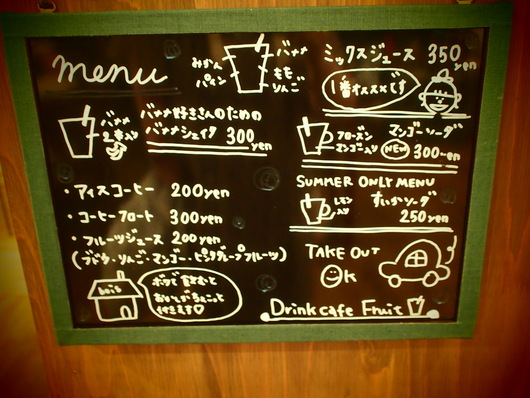 menu
みかん
パイン
バナナ
もも
りんご
ミックスジュース 350yen
1番オススメです
バナナ
2本入り
バナナ好きさんのための
バナナシェイク 300yen
フローズン
マンゴー入り
マンゴーソーダ
NEW 300yen
SUMMER ONLY MENU
レモン
入り
すいかソーダ
250yen
・アイスコーヒー 200yen
・コーヒーフロート 300yen
・フルーツジュース 200yen
(ブドウ・りんご・マンゴー・ピンクグレープフルーツ)
TAKE OUT
OK
ボクで飲むと
おいとがちょこっと
付きます♡
Drink cafe Fruit